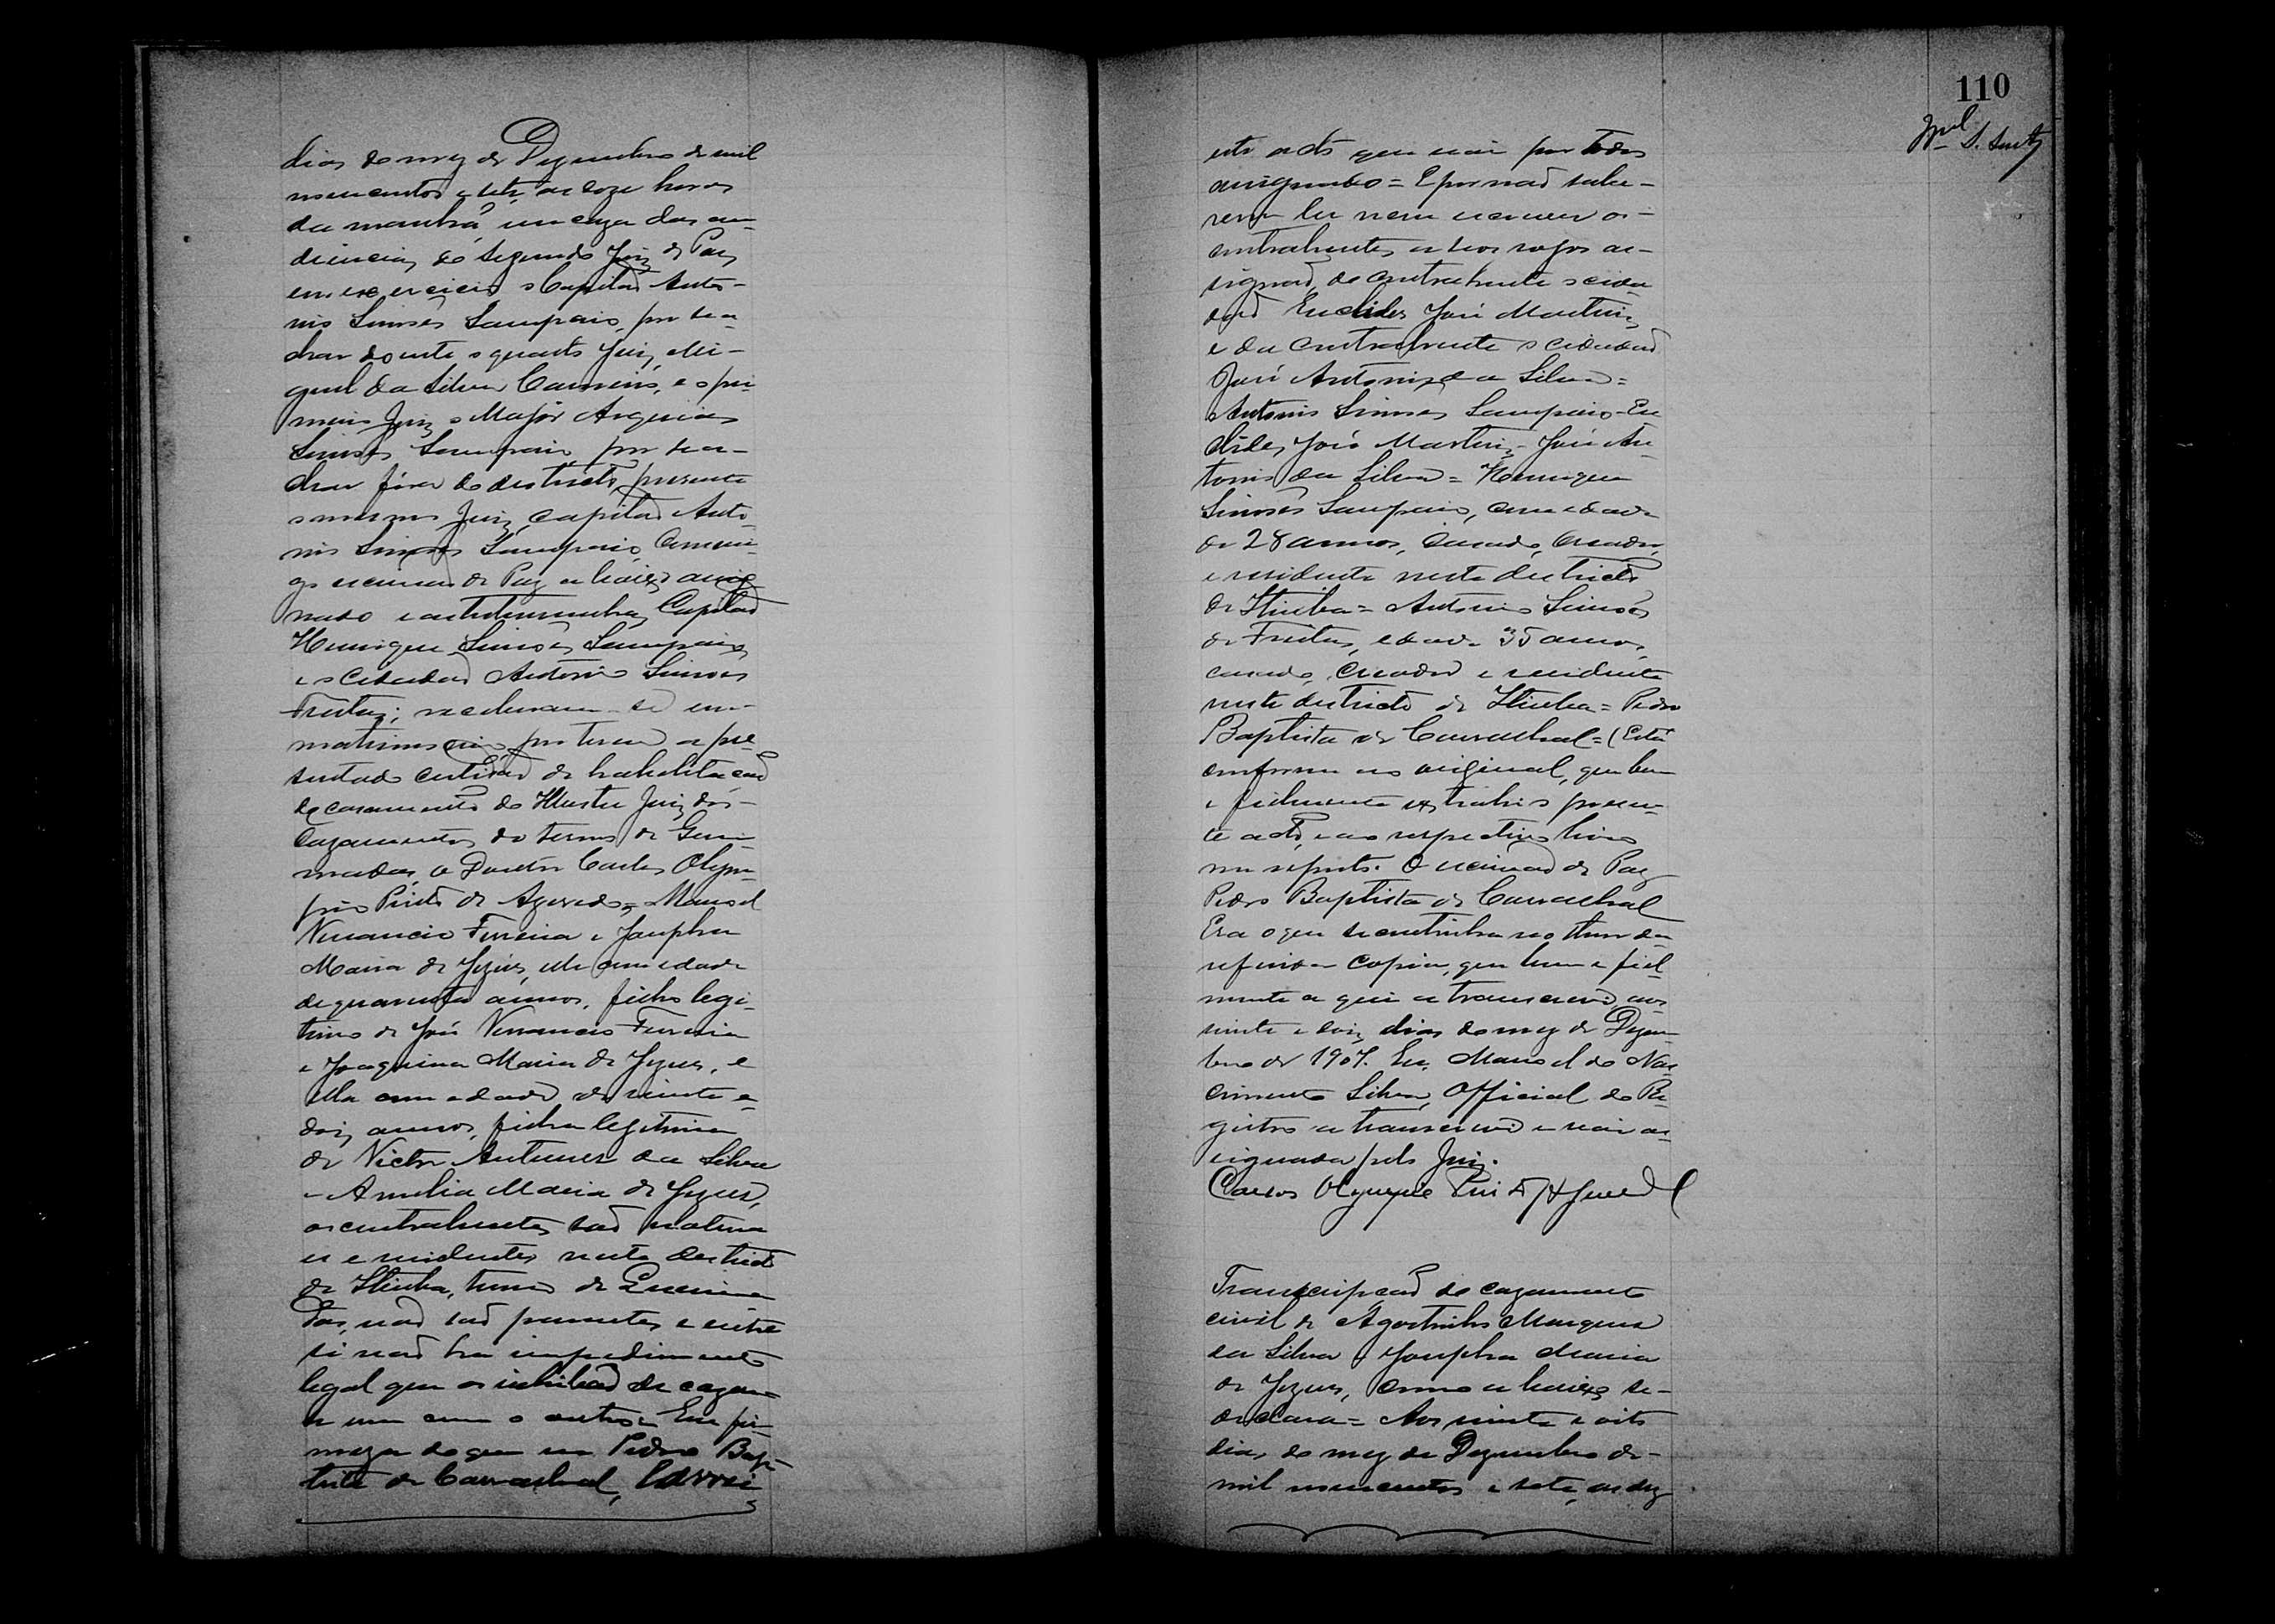 dias do mez de Dezembro de mil
novecentos e sete, as onze horas
da manhã, em caza das au-
diencias do segundo Juiz de Paz
em exercicio o Capitão Anto-
nio Simões Sampaio, por se a-
char doente o quarto Juiz, Mi-
guel da Silva Carneiro, e o pri-
meiro Juiz o Major
Simões Sampaio, por se a-
char fóra do destricto, presente
o mesmo Juiz, capitão Anto-
nio Simões Sampaio, Commi-
go escrivão de Paz abaixo assig-
nado e as testemunhas, Capitão
Henrique Simões Sampaio,
e o Cidadão Antonio Simões
Freitas; receberam-se em-
matrimonio por terem apre-
sentado certidão de habilitacão
de casamento do Illustre Juiz dos-
Cazamentos do termo de Quei-
madas, o Doutor Carlos Olym-
pio Pinto de Azevedo, = Manoel
Venancio Ferreira e Josepha
Maria de Jezús, elle com edade
de quarenta annos, filho legi-
timo de José Venancio Ferreira
e Joaquina Maria de Jezus, e
ella com edade de vinte e-
dois annos, filha legitima
de Victor Antunes da Silva
e Amelia Maria de Jezus,
os contrahentes são naturae
es e residentes neste destricto
de Itiuba, termo de Queima
das, não são parentes e entre
si não ha impedimento
legal que os inhibão de cazare
m um com o outro = Em fir-
meza do que eu Pedro Bap-
tista de Carvalhal, Escrevi
110
este acto que vai por todos
assignado = E por não sabe-
rem ler nem escrever os-
contrahentes, a seos rogos as-
signão, do contrahente o cida-
dão Euclides José Martins,
e da contrahente o cidadão
José Antonio da Silva =
Antonio Simões Sampaio = Eu
clides José Martins = José An
tonio da Silva = Henrique
Simões Sampaio, com edade
de 28 annos, Casado, Creador,
e residente neste destricto
de Itiuba = Antonio Simões
de Freitas, edade 35 annos,
casado, Creador e residente
neste destricto de Itiuba = Pedro
Baptista de Carvalhal = (Está
conforme ao original, que bem
e fielmente extrahi o presen-
te acto, e ao respectivo livro
me reporto. O escrivão de Paz
Pedro Baptista de Carvalhal
Era o que se continha no theor da
referida copia, que bem e fiel-
mente aqui a transcrevi, aos
vinte e dois dias do mez de Dezem-
bro de 1907. Eu, Manoel do Nas
cimento Silva, Official do Re-
gistro a transcrevi e vai as-
signada pelo Juiz.
Carlos Olympio Pinto d'Azevedo
Transcripção do cazamento
civil de Agostinho Marques
da Silva e Josepha Maria
de Jezus, como abaixo se-
declara = Aos vinte e oito
dias do mez de Dezembro de-
mil novecentos e sete, as dez